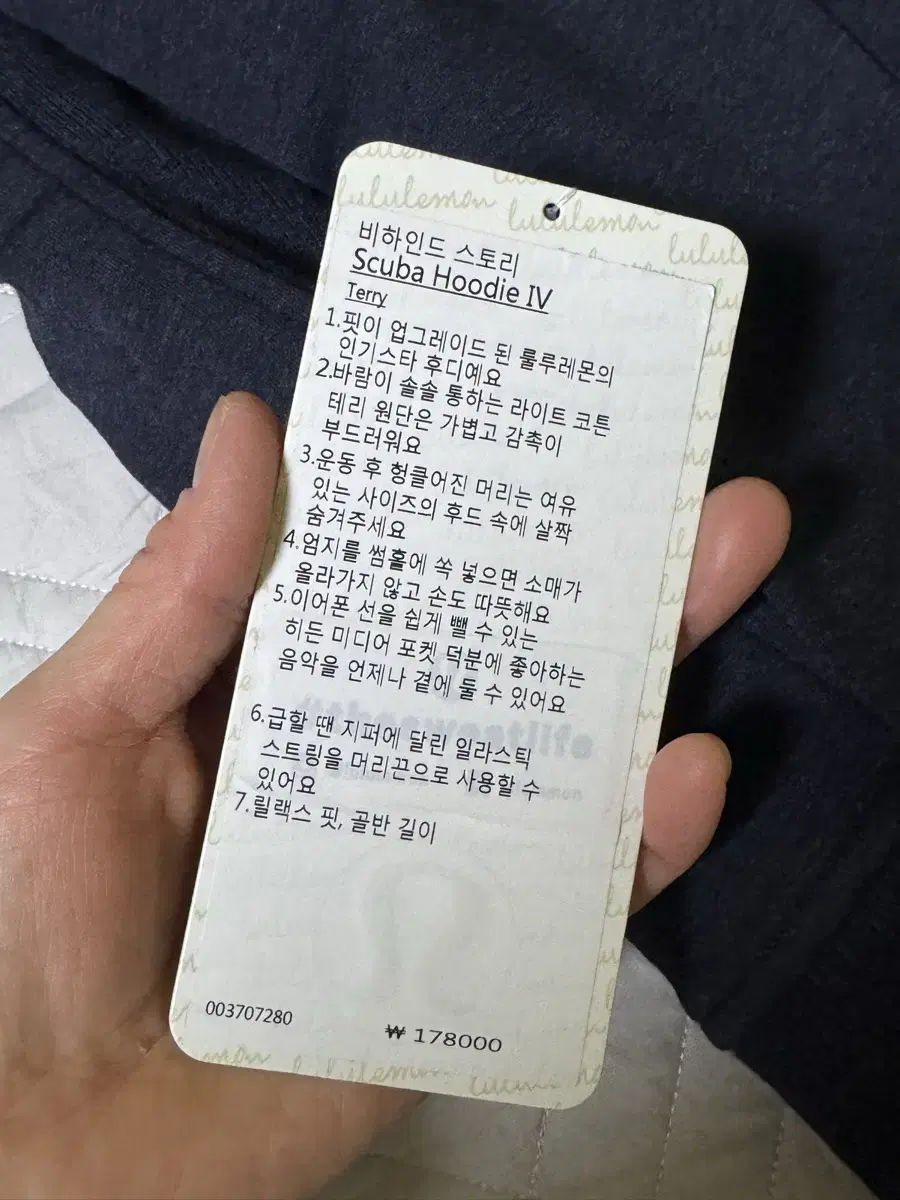 lululemon
lululemon
lulul
비하인드 스토리
Scuba Hoodie IV
Terry
1.핏이 업그레이드 된 룰루레몬의
인기스타 후디예요
2.바람이 솔솔 통하는 라이트 코튼
테리 원단은 가볍고 감촉이
부드러워요
3.운동 후 헝클어진 머리는 여유
있는 사이즈의 후드 속에 살짝
숨겨주세요
4.엄지를 썸홀에 쏙 넣으면 소매가
올라가지 않고 손도 따뜻해요
5.이어폰 선을 쉽게 뺄 수 있는
히든 미디어 포켓 덕분에 좋아하는
음악을 언제나 곁에 둘 수 있어요
6.급할 땐 지퍼에 달린 일라스틱
스트링을 머리끈으로 사용할 수
있어요
7.릴랙스 핏, 골반 길이
003707280
₩ 178000